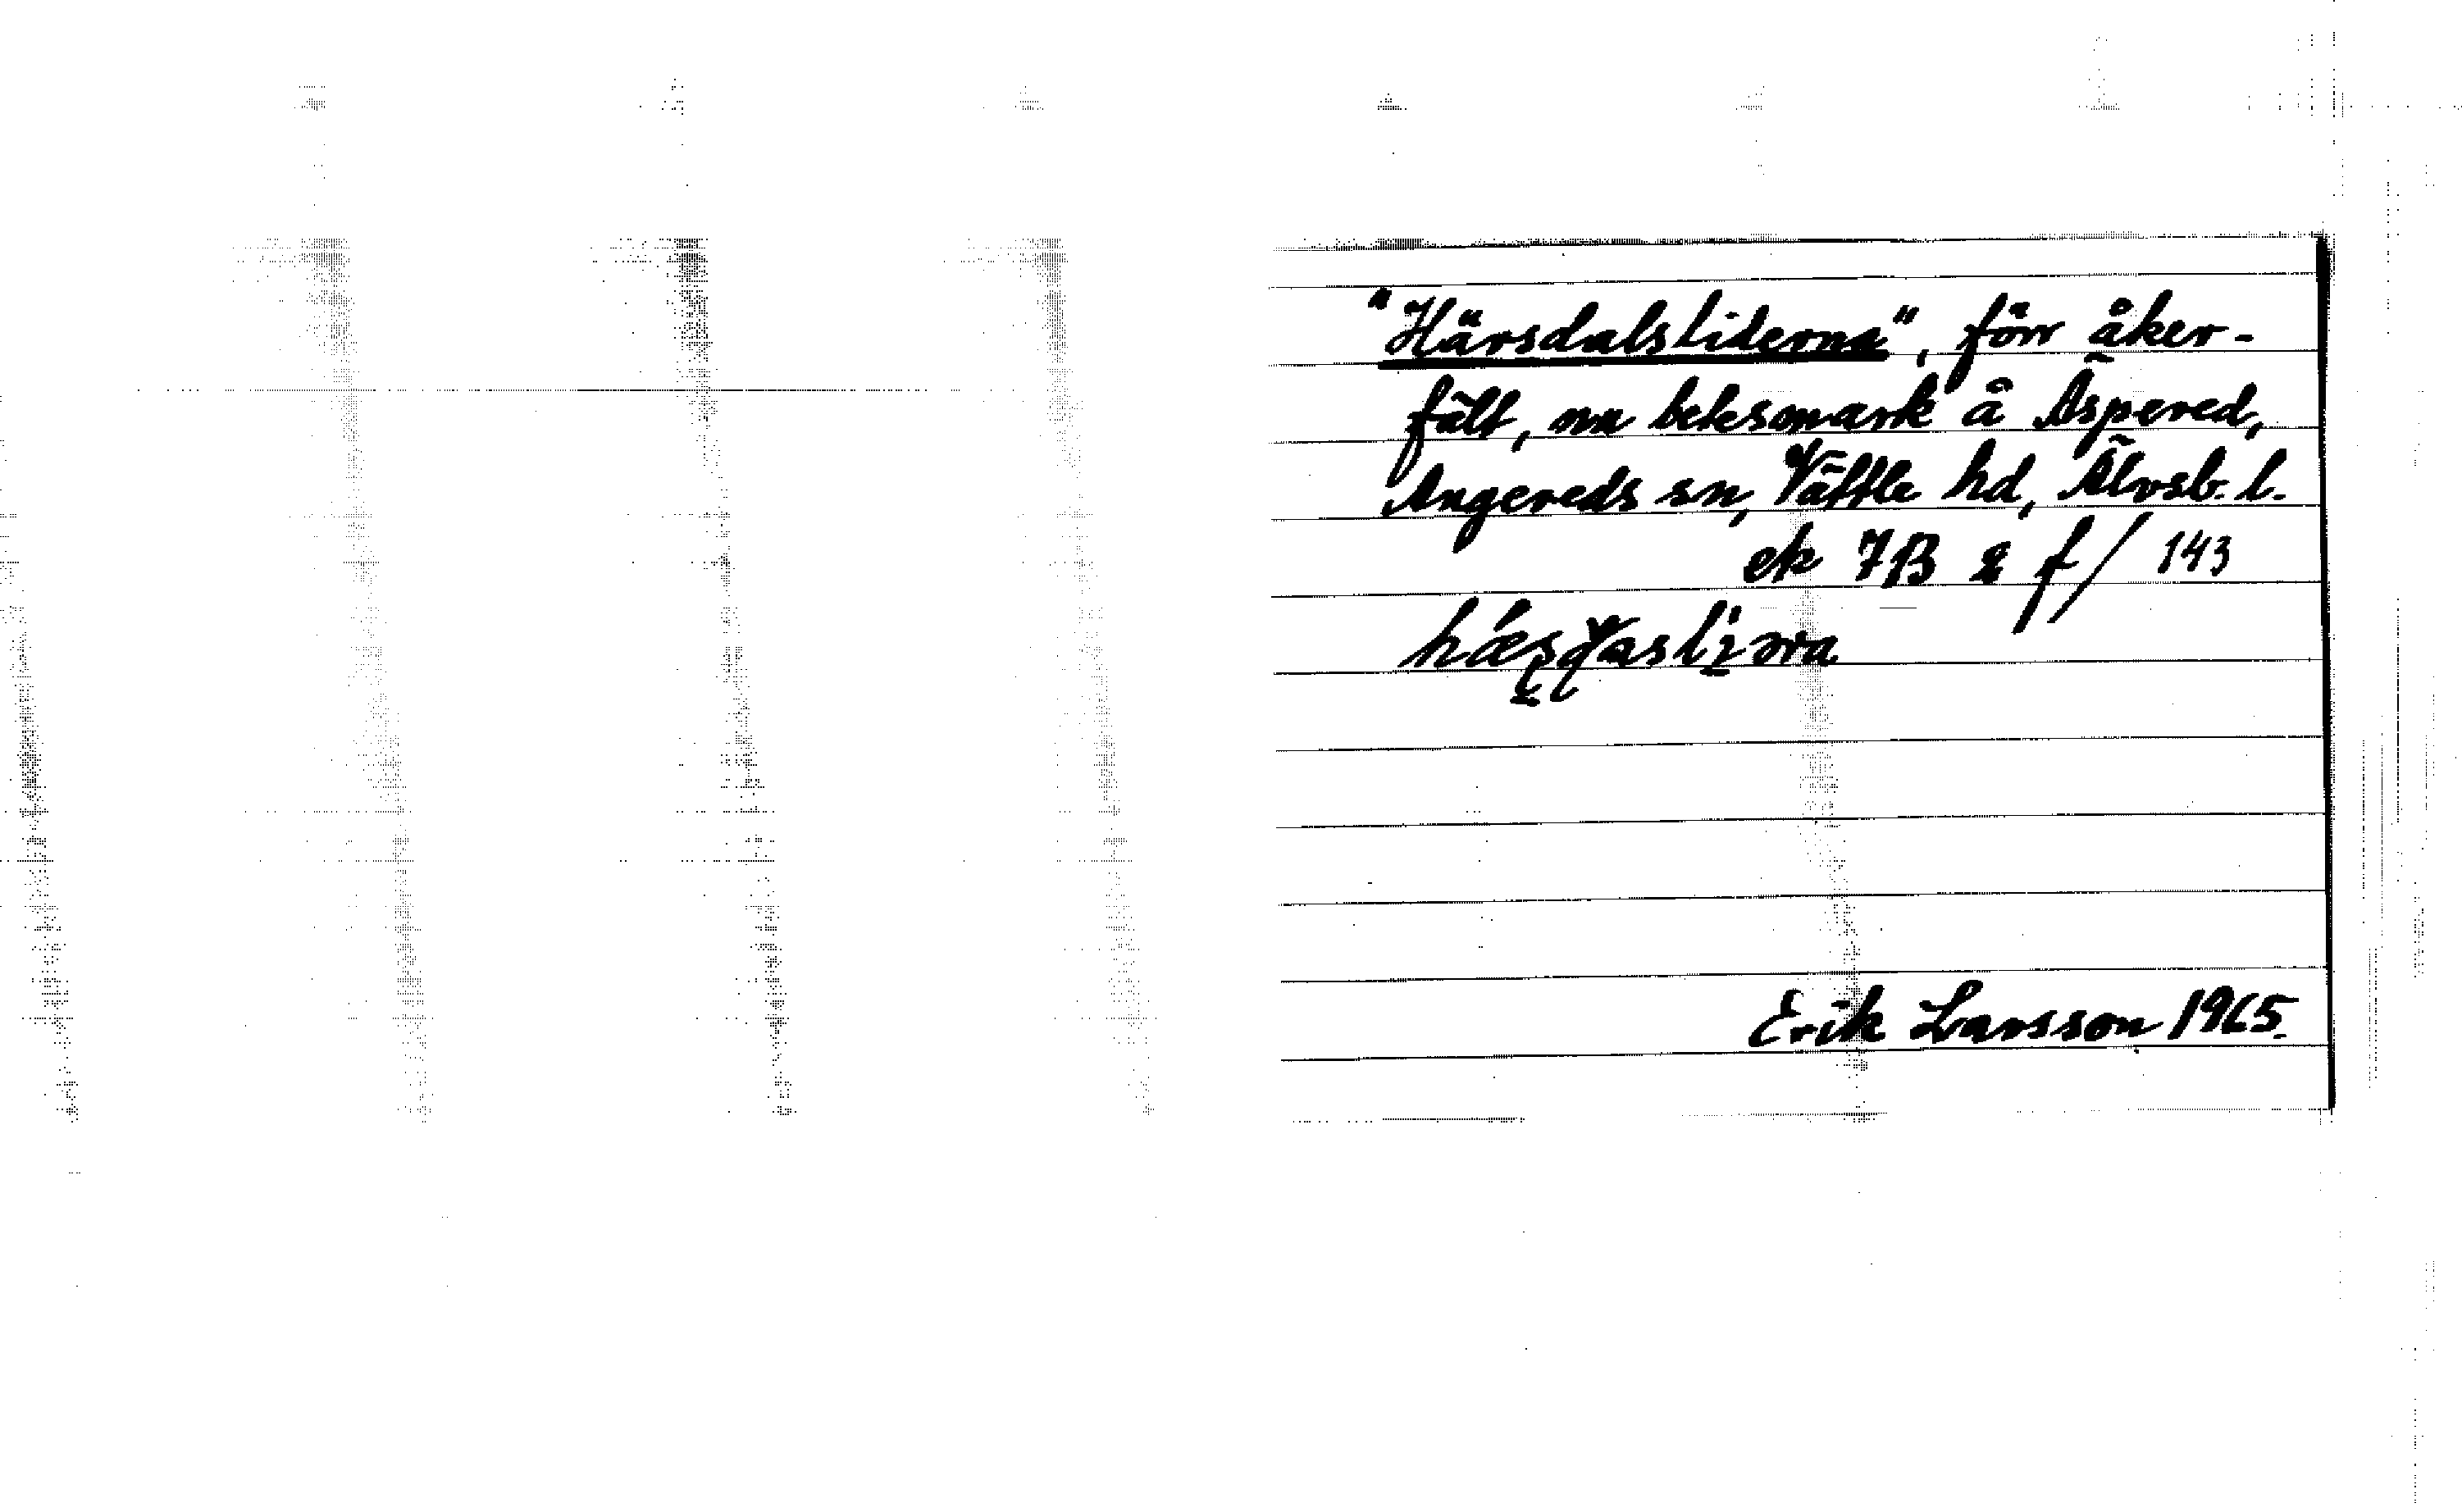 "Härsdalsliderna", förr åker-
fält, nu betesmark å Äspered,
Angereds sn, Vättle hd, Älvsb. l.
ek 7B 2 f/143
Erik Larsson 1965.